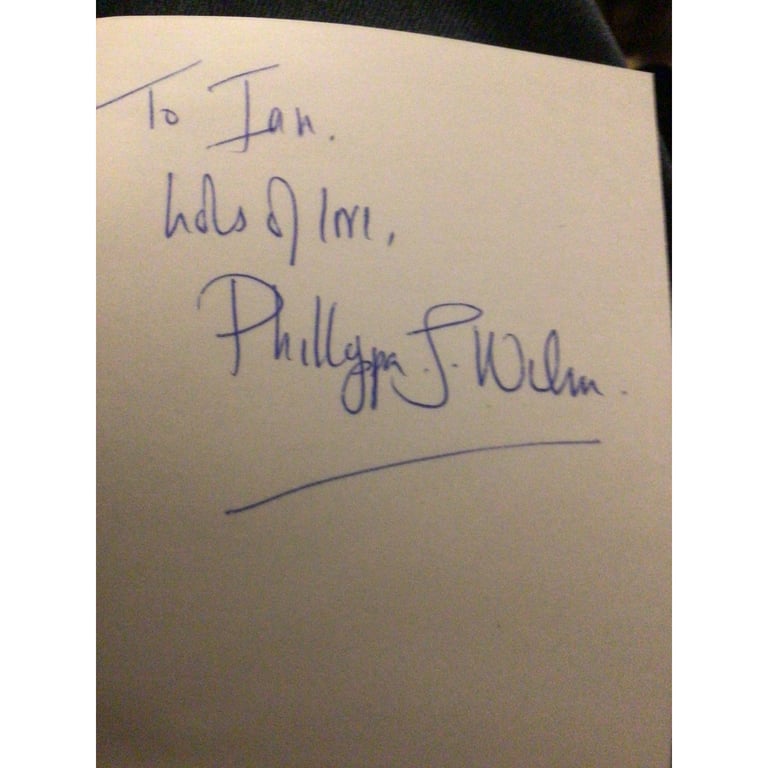 To Ian.
Lots of love,
Phillyppa J.